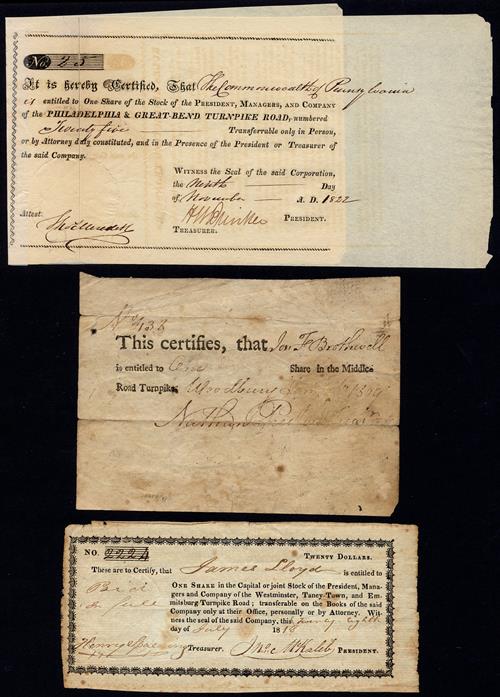 No. 25
It is hereby Certified, That The Commonwealth of Pennsylvania
is entitled to One Share of the Stock of the PRESIDENT, MANAGERS, AND COMPANY
of the PHILADELPHIA & GREAT-BEND TURNPIKE ROAD, numbered
Twenty five Transferrable only in Person,
or by Attorney duly constituted, and in the Presence of the President or Treasurer of
the said Company.
WITNESS the Seal of the said Corporation,
the Ninth Day
of November A. D. 1822
Attest:
PRESIDENT.
TREASURER.
No. 138
This certifies, that Jon F Brothwell
is entitled to One Share in the Middle
Road Turnpike. Woodbury
Nathan
NO. 2224 TWENTY DOLLARS.
These are to Certify, that James Lloyd is entitled to
ONE SHARE in the Capital or joint Stock of the President, Mana-
gers and Company of the Westminster, Taney-Town, and Em-
mitsburg Turnpike Road; transferable on the Books of the said
Company only at their Office, personally or by Attorney. Wit-
ness the seal of the said Company, this twenty eighth
day of July 1818
Paid
in full
Treasurer. Jno. McKaleb PRESIDENT.